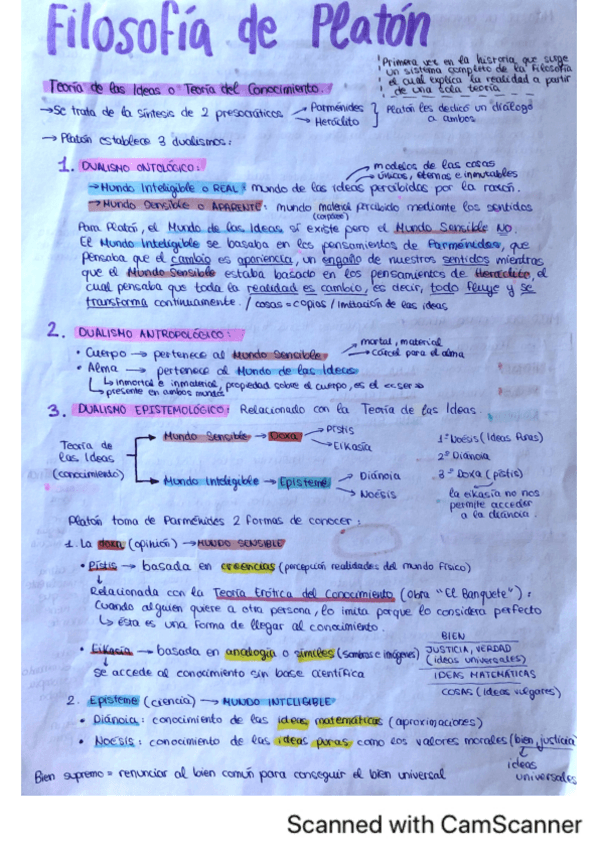 Filosofía de Platón
Primera vez en la historia que surge
un sistema completo de la Filosofía
el cual explica la realidad a partir
de una sola teoría
Teoría de las Ideas o Teoría del Conocimiento.
→ Se trata de la síntesis de 2 presocráticos → Parménides
→ Heráclito } Platón les dedicó un diálogo
a ambos
→ Platón establece 3 dualismos:
1. DUALISMO ONTOLÓGICO:
→ modelos de las cosas
→ únicas, eternas e inmutables
→ Mundo Inteligible o REAL: mundo de las ideas percibidas por la razón.
→ Mundo Sensible o APARENTE: mundo material percibido mediante los sentidos
Para Platón, el Mundo de las Ideas sí existe pero el Mundo Sensible NO.
El Mundo Inteligible se basaba en los pensamientos de Parménides, que
pensaba que el cambio es apariencia, un engaño de nuestros sentidos mientras
que el Mundo Sensible estaba basado en los pensamientos de Heráclito, el
cual pensaba que toda la realidad es cambio, es decir, todo fluye y se
transforma continuamente. / cosas = copias / imitación de las ideas
2. DUALISMO ANTROPOLÓGICO:
• Cuerpo → pertenece al Mundo Sensible → mortal, material
→ cárcel para el alma
• Alma → pertenece al Mundo de las Ideas
↳ inmortal e inmaterial, propiedad sobre el cuerpo, es el <<ser>>
↳ presente en ambos mundos
3. DUALISMO EPISTEMOLÓGICO: Relacionado con la Teoría de las Ideas.
Teoría de
las Ideas
(conocimiento)
→ Mundo Sensible → Doxa → Pistis
→ Eikasía
→ Mundo Inteligible → Episteme → Diánoia
→ Noésis
1º Noésis (Ideas Puras)
2º Diánoia
3º Doxa (pistis)
la eikasía no nos
permite acceder
a la diánoia.
Platón toma de Parménides 2 formas de conocer:
1. La doxa (opinión) → MUNDO SENSIBLE
• Pístis → basada en creencias (percepción realidades del mundo físico)
↓
Relacionada con la Teoría Erótica del Conocimiento (Obra "El Banquete"):
Cuando alguien quiere a otra persona, lo imita porque lo considera perfecto
↳ ésta es una forma de llegar al conocimiento.
• Eikasía → basada en analogía o símiles (sombras e imágenes)
↓
Se accede al conocimiento sin base científica
BIEN
JUSTICIA, VERDAD
(ideas universales)
IDEAS MATEMÁTICAS
COSAS (Ideas vulgares)
2. Episteme (ciencia) → MUNDO INTELIGIBLE
• Diánoia: conocimiento de las ideas matemáticas (aproximaciones)
• Noésis: conocimiento de las ideas puras como los valores morales (bien, justicia)
↓
ideas
universales
Bien supremo = renunciar al bien común para conseguir el bien universal
Scanned with CamScanner